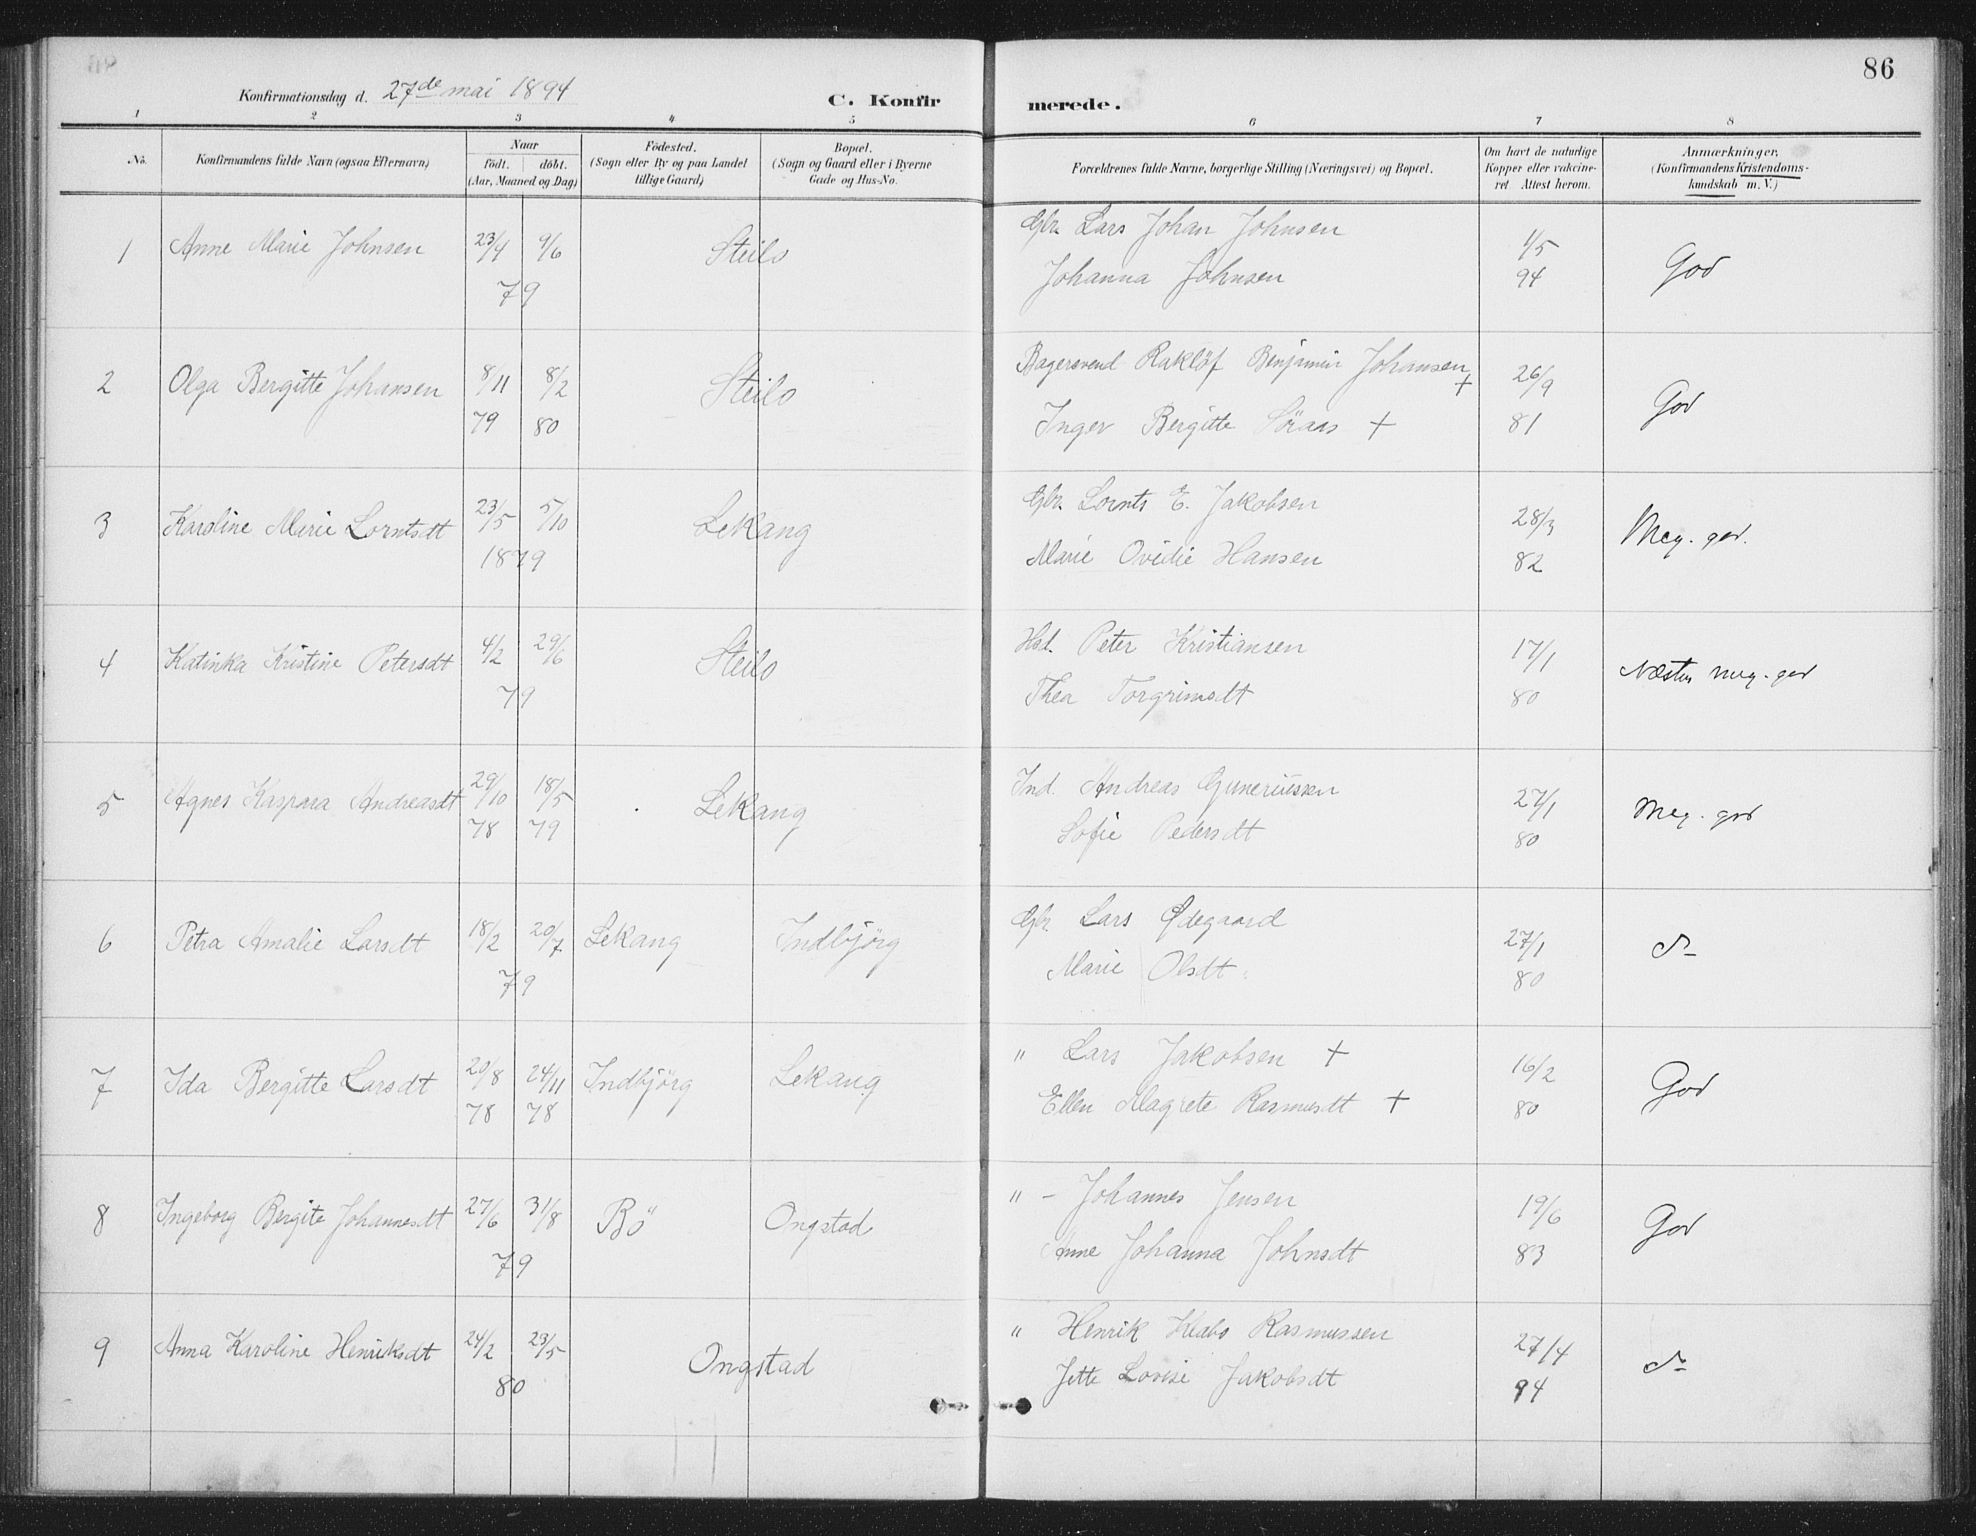 86
Konfirmationsdag d. 27de mai 1894
C. Konfir merede.
1 2 3 4 5 6 7 8
No. Konfirmandens fulde Navn (ogsaa Efternavn) Naar födt. döbt. (Aar, Maaned og Dag) Födested. (Sogn eller By og paa Landet tillige Gaard) Bopæl. (Sogn og Gaard eller i Byerne Gade og Hus-No. Forældrenes fulde Navne, borgerlige Stilling (Næringsvei) og Bopæl. Om havt de naturlige Kopper eller vakcineret. Attest herom. Anmærkninger. (Konfirmandens Kristendomskundskab m. V.)
1 Anne Marie Johnsen 23/4 9/6 79 Steilo Gbr. Lars Johan Johnsen 1/5 94 God
Johanna Johnsen
2 Olga Bergitte Johansen 8/11 79 8/2 80 Steilo Bagersvend Rakløf Benjamin Johansen + 26/9 81 God
Inger Bergitte Söraas +
3 Karoline Marie Lorntsdt 23/5 5/10 1879 Lekang Gbr. Lornts E. Jakobsen 28/3 82 Meg. god.
Marie Ovidie Hansen
4 Katinka Kristine Petersdt 4/2 29/6 79 Steilo Hsl. Peter Kristiansen 17/1 80 Næsten meg. god
Thea Torgrimsdt
5 Agnes Kaspara Andreasdt 29/10 78 18/5 79 Lekang Ind. Andreas Guneriussen 27/1 80 Meg. god
Sofie Pedersdt
6 Petra Amalie Larsdt 18/2 20/7 79 Lekang Indbjörg Gbr. Lars Ødegaard 27/1 80 do
Marie Olsdt.
7 Ida Bergitte Larsdt 20/8 78 24/11 78 Indbjörg Lekang " Lars Jakobsen + 16/2 80 God
Ellen Magrete Rasmusdt +
8 Ingeborg Bergite Johannesdt 27/6 31/8 79 Bö Ongstad " - Johannes Jensen 19/6 83 God
Anne Johanna Johnsdt
9 Anna Karoline Henriksdt 24/2 23/5 80 Ongstad " Henrik Klabo Rasmussen 27/4 94 do
Jette Lovise Jakobsdt